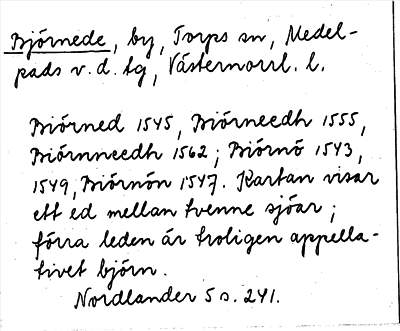 Björnede, by, Torps sn, Medel-
pads v. d. tg, Västernorrl. l.
Biörned 1545, Biörneedh 1555,
Biörnneedh 1562; Biörnö 1543,
1549, Biörnön 1547. Kartan visar
ett ed mellan tvenne sjöar;
förra leden är troligen appella-
tivet björn.
Nordlander 5 s. 241.